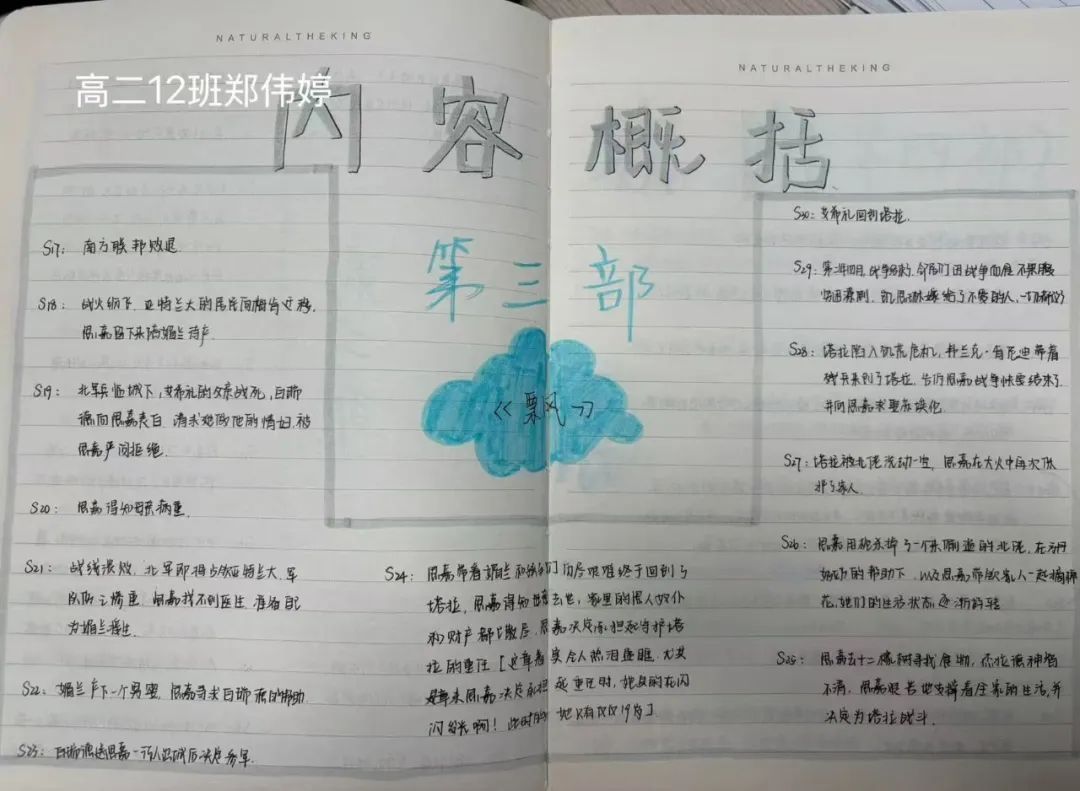 NATURALTHEKING
NATURALTHEKING
高二12班郑伟婷
内容概括
第三部
《飘风》
S17: 南方联邦败退
S18: 战火纷飞，亚特兰大的居民向梅肯迁移，
思嘉留下来陪媚兰待产.
S19: 北军兵临城下，艾希礼的父亲战死，白瑞
德向思嘉表白，请求她做他的情妇，被
思嘉严词拒绝.
S20: 思嘉得知母亲病重.
S21: 战线溃败，北军即将占领亚特兰大，军
队伤亡惨重，思嘉找不到医生，准备自己
为媚兰接生.
S22: 媚兰产下一个男婴，思嘉寻求白瑞德的帮助
S23: 白瑞德送思嘉一行人出城后决定参军.
S24: 思嘉带着媚兰和孩子们历尽艰难终于回到了
塔拉，思嘉得知母亲去世，家里的黑人奴仆
和财产都已散尽，思嘉决定承担起守护塔
拉的重任[这章看
实令人热泪盈眶，尤其
是章末思嘉决定承担起重任时，她真的在闪
闪发光啊！此时的她只有仅仅19岁].
S30: 艾希礼回到塔拉.
S29: 第二年四月，战争结束，
凯思琳嫁给了不爱的人，一切都变了
S28: 塔拉陷入饥荒危机，弗兰克·肯尼迪带着
残兵来到了塔拉，告诉思嘉战争快要结束了
并向思嘉求娶苏埃伦.
S27: 塔拉被北佬洗劫一空，思嘉在大火中再次保
护了家人.
S26: 思嘉用枪杀掉了一个来偷盗的北佬，在方丹
奶奶的帮助下，以及思嘉带领家人一起摘棉
花，她们的生活状态逐渐好转
S25: 思嘉去十二橡树寻找食物，杰拉德神智
不清，思嘉艰苦地支撑着全家的生活，并
决定为塔拉战斗.